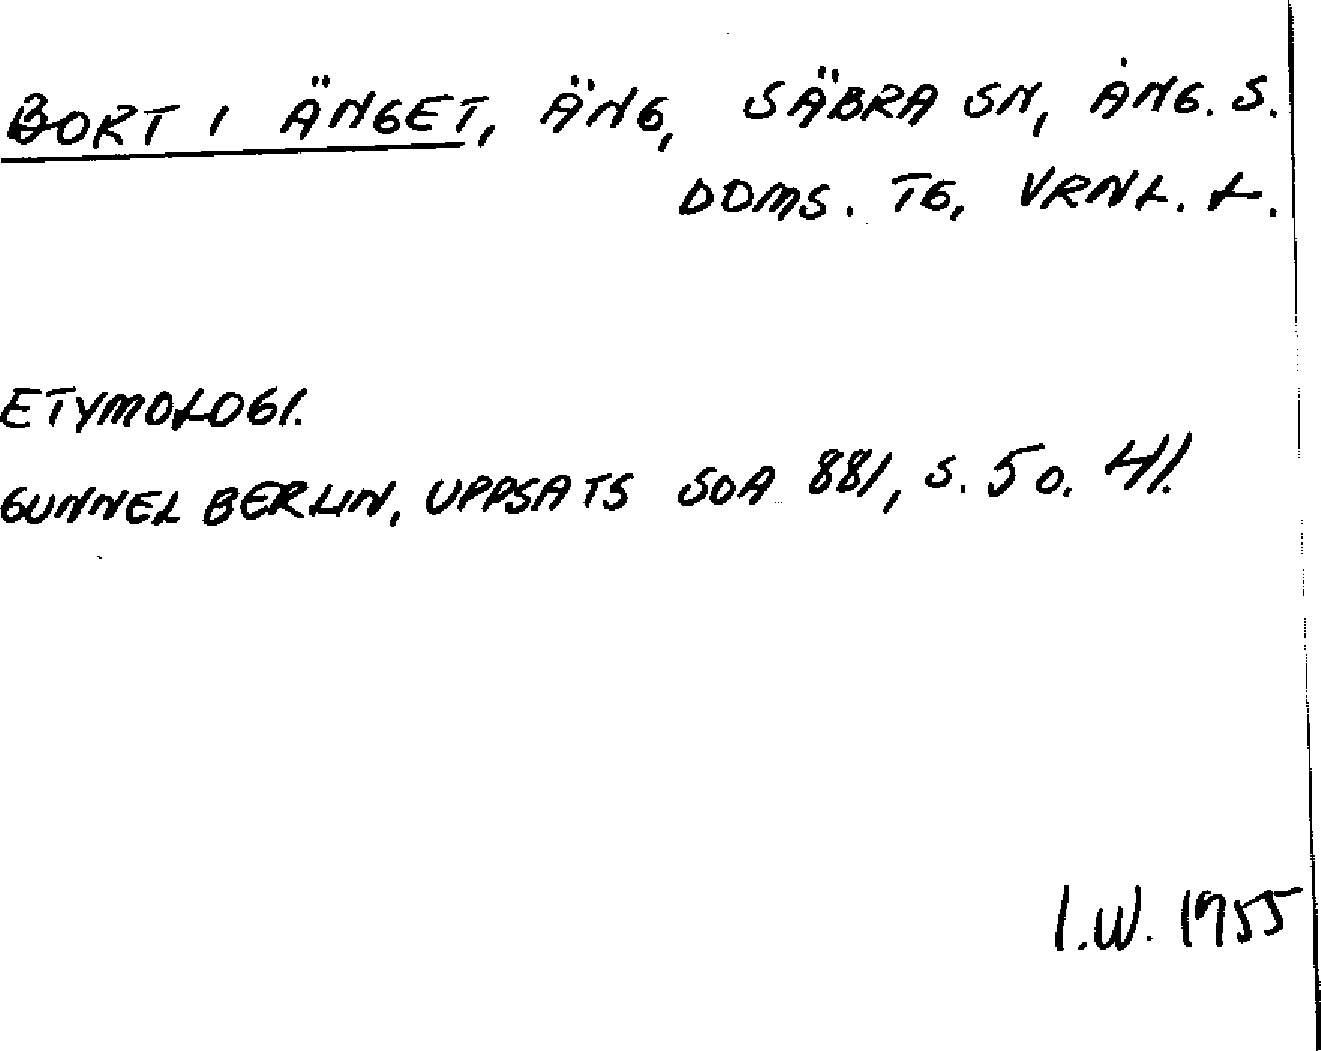 BORT I ÄNGET, ÄNG, SÄBRA SN, ÅNG. S.
DOMS. TG, VRNL. L.
ETYMOLOGI.
GUNNEL BERLIN, UPPSATS SOA 881, S. 5 O. 41.
I.W. 1955